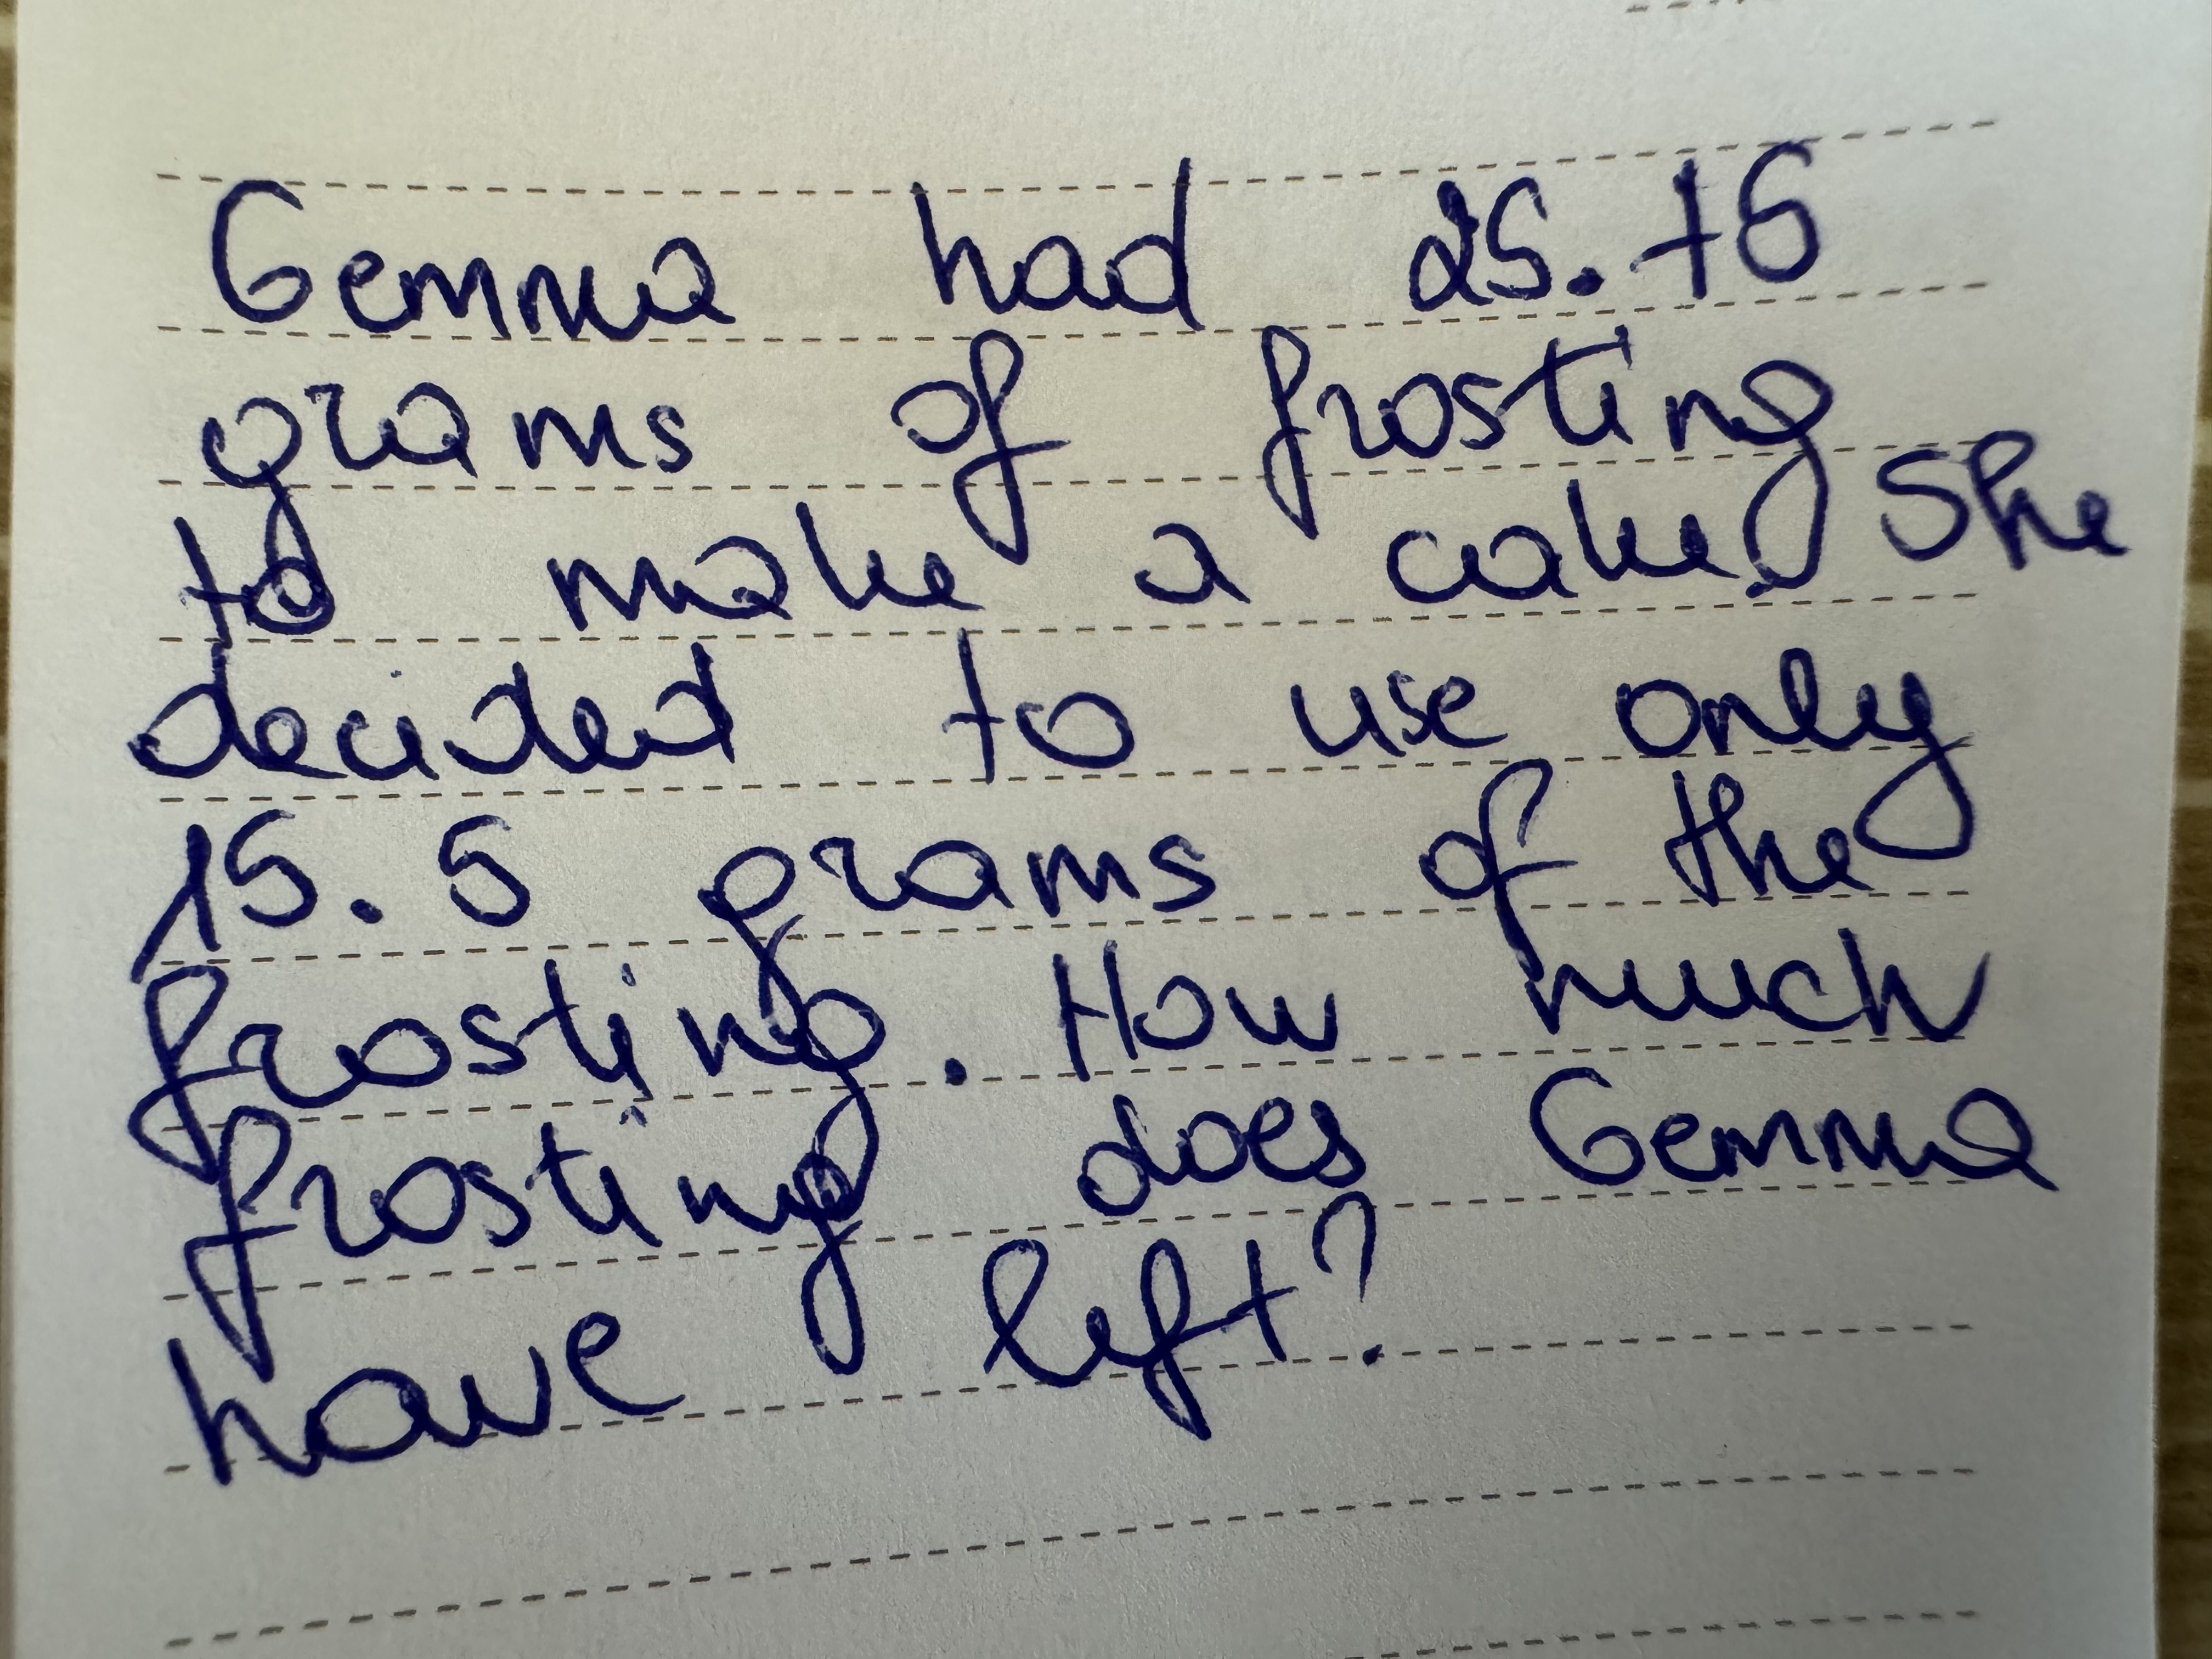 Gemma had 25.75
grams of frosting
to make a cake. She
decided to use only
15.5 grams of the
frosting. How much
frosting does Gemma
have left?